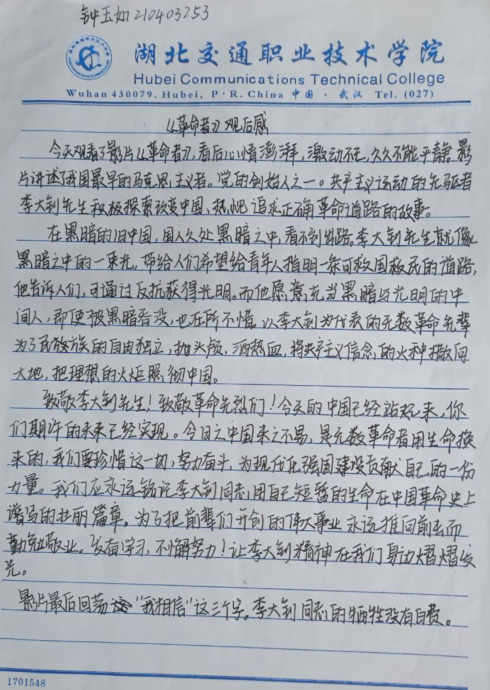 钟玉如 210403253
湖北交通职业技术学院
Hubei Communications Technical College
Wuhan 430079, Hubei, P·R. China 中国·武汉 Tel. (027)
《革命者》观后感
今天观看了影片《革命者》,看后心情澎湃,激动不已,久久不能平静。影
片讲述了我国最早的马克思主义者。党的创始人之一。共产主义运动的先驱者
李大钊先生积极探索改变中国、热心追求正确革命道路的故事。
在黑暗的旧中国,国人久处黑暗之中,看不到出路,李大钊先生就像
黑暗之中的一束光,带给人们希望给青年人指明一条可救国救民的道路,
他告诉人们,可通过反抗获得光明。而他愿意充当黑暗与光明的中
间人,即便被黑暗吞没,也在所不惜,以李大钊为代表的无数革命先辈
为了民族的自由独立,抛头颅,洒热血,将共产主义信念的火种撒向
大地,把理想的火炬照彻中国。
致敬李大钊先生!致敬革命先烈们!今天的中国已经站起来,你
们期许的未来已经实现。今日之中国来之不易,是无数革命者用生命换
来的,我们要珍惜这一切,努力奋斗,为现代化强国建设贡献自己的一份
力量。我们应永远铭记李大钊同志,用自己短暂的生命在中国革命史上
谱写的壮丽篇章。为了把前辈们开创的伟大事业永远推向前去而
勤勉敬业。发奋学习,不懈努力!让李大钊精神在我们身边熠熠发
光。
影片最后回荡"我相信"这三个字。李大钊同志的牺牲没有白费。
1701548